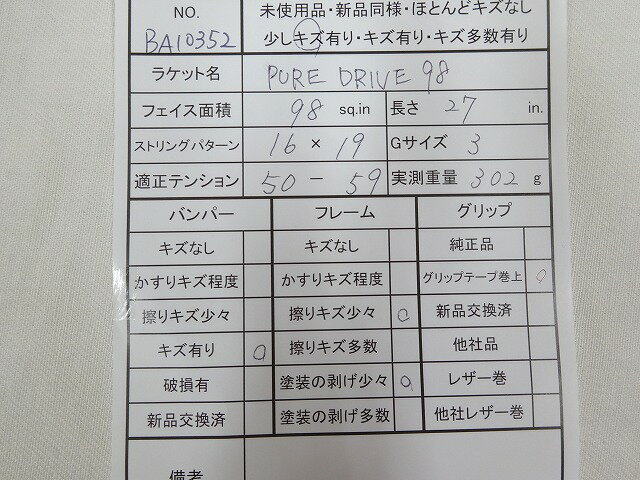 NO. 未使用品・新品同様・ほとんどキズなし
BA10352 少しキズ有り・キズ有り・キズ多数有り
ラケット名 PURE DRIVE 98
フェイス面積 98 sq.in 長さ 27 in.
ストリングパターン 16 × 19 Gサイズ 3
適正テンション 50 - 59 実測重量 302 g
バンパー フレーム グリップ
キズなし キズなし 純正品
かすりキズ程度 かすりキズ程度 グリップテープ巻上 ○
擦りキズ少々 擦りキズ少々 ○ 新品交換済
キズ有り ○ 擦りキズ多数 他社品
破損有 塗装の剥げ少々 ○ レザー巻
新品交換済 塗装の剥げ多数 他社レザー巻
備考